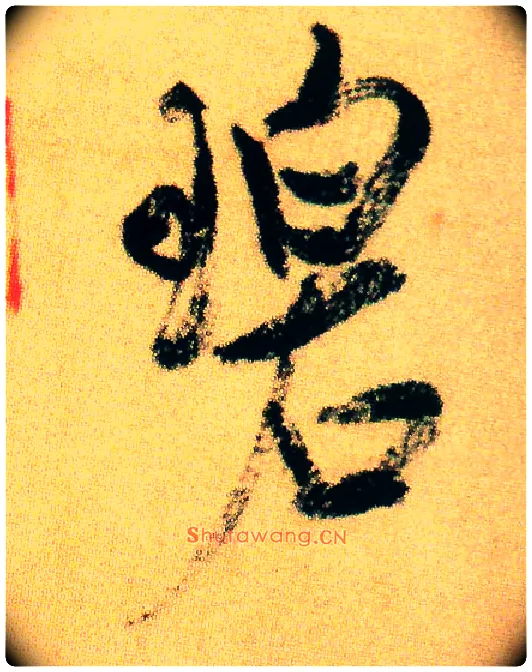 碧
Shufawang.CN